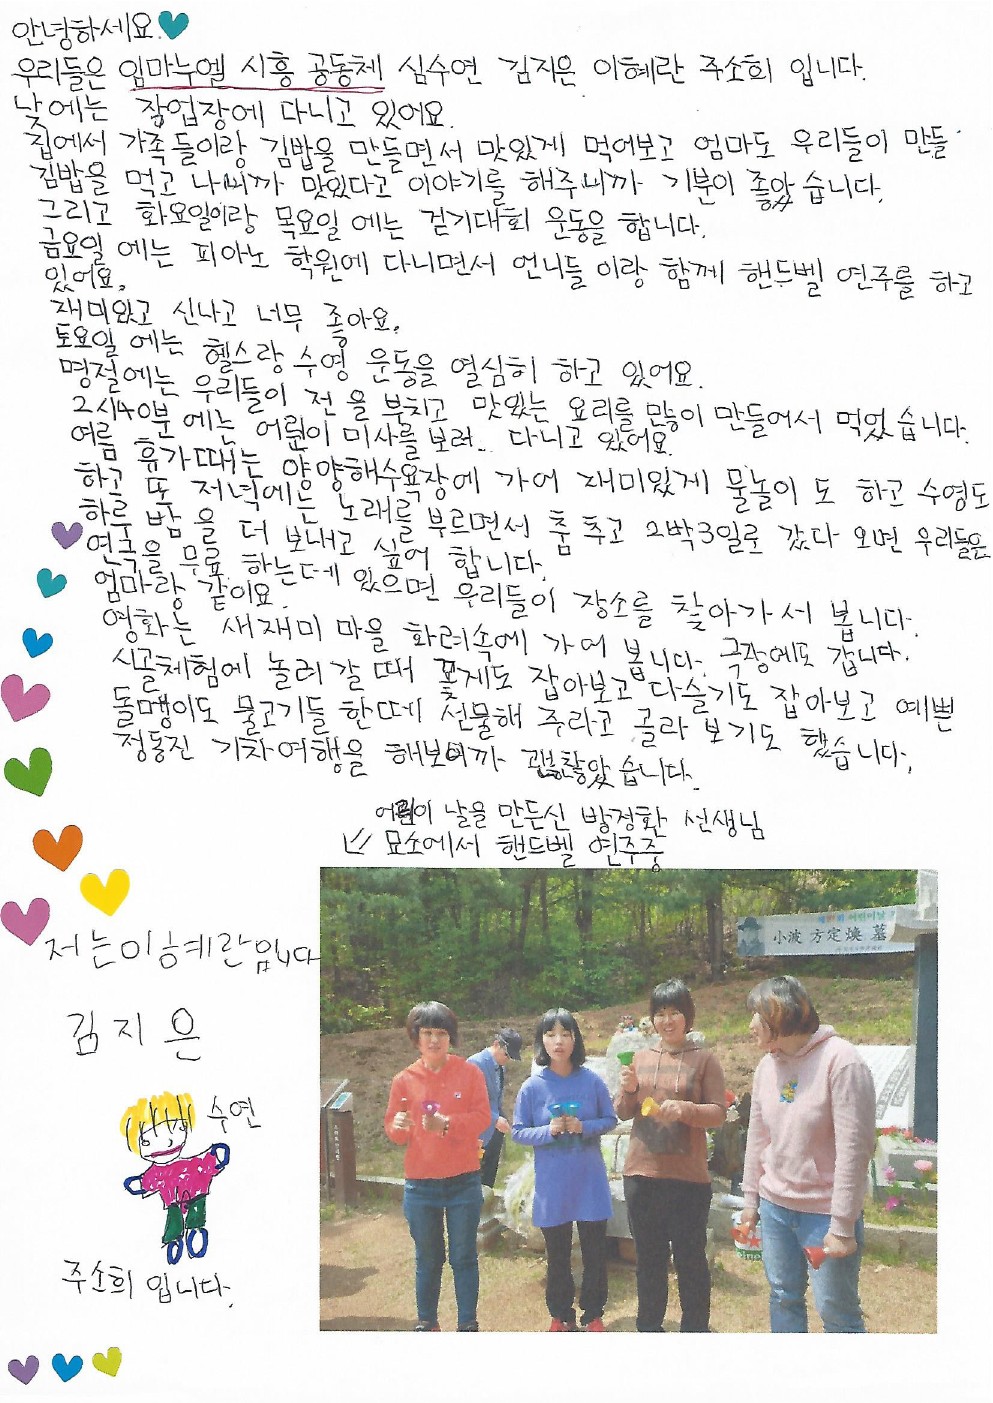 안녕하세요.
우리들은 임마누엘 시흥 공동체 심수연 김지은 이혜란 주소희 입니다.
낮에는 작업장에 다니고 있어요.
집에서 가족들이랑 김밥을 만들면서 맛있게 먹어보고 엄마도 우리들이 만들
김밥을 먹고 나니까 맛있다고 이야기를 해주니까 기분이 좋았습니다.
그리고 화요일이랑 목요일 에는 걷기대회 운동을 합니다.
금요일 에는 피아노 학원에 다니면서 언니들 이랑 함께 핸드벨 연주를 하고
있어요.
재미있고 신나고 너무 좋아요.
토요일 에는 헬스랑 수영 운동을 열심히 하고 있어요.
명절에는 우리들이 전을 부치고 맛있는 요리를 많이 만들어서 먹었습니다.
2시40분에는 어린이 미사를 보러.. 다니고 있어요.
여름 휴가때는 양양해수욕장에 가어 재미있게 물놀이 도 하고 수영도
하고 또 저녁에는 노래를 부르면서 춤 추고 2박3일로 갔다 오면 우리들은
하루 밤을 더 보내고 싶어 합니다.
연극을 무료 하는데 있으면 우리들이 장소를 찾아가서 봅니다.
엄마랑 같이요.
영화는 새재미 마을 화려속에 가어 봅니다. 극장에도 갑니다.
시골체험에 놀러 갈 때 꽃게도 잡아보고 다슬기도 잡아보고 예쁜
돌맹이도 물고기들 한떼 선물해 주라고 골라 보기도 했습니다.
정동진 기차여행을 해보니까 괜찮았습니다.
어린이 날을 만든신 방정환 선생님
묘소에서 핸드벨 연주중
어린이날
小波 方定煥 墓
저는이혜란입니다
김지은
수연
주소희 입니다.